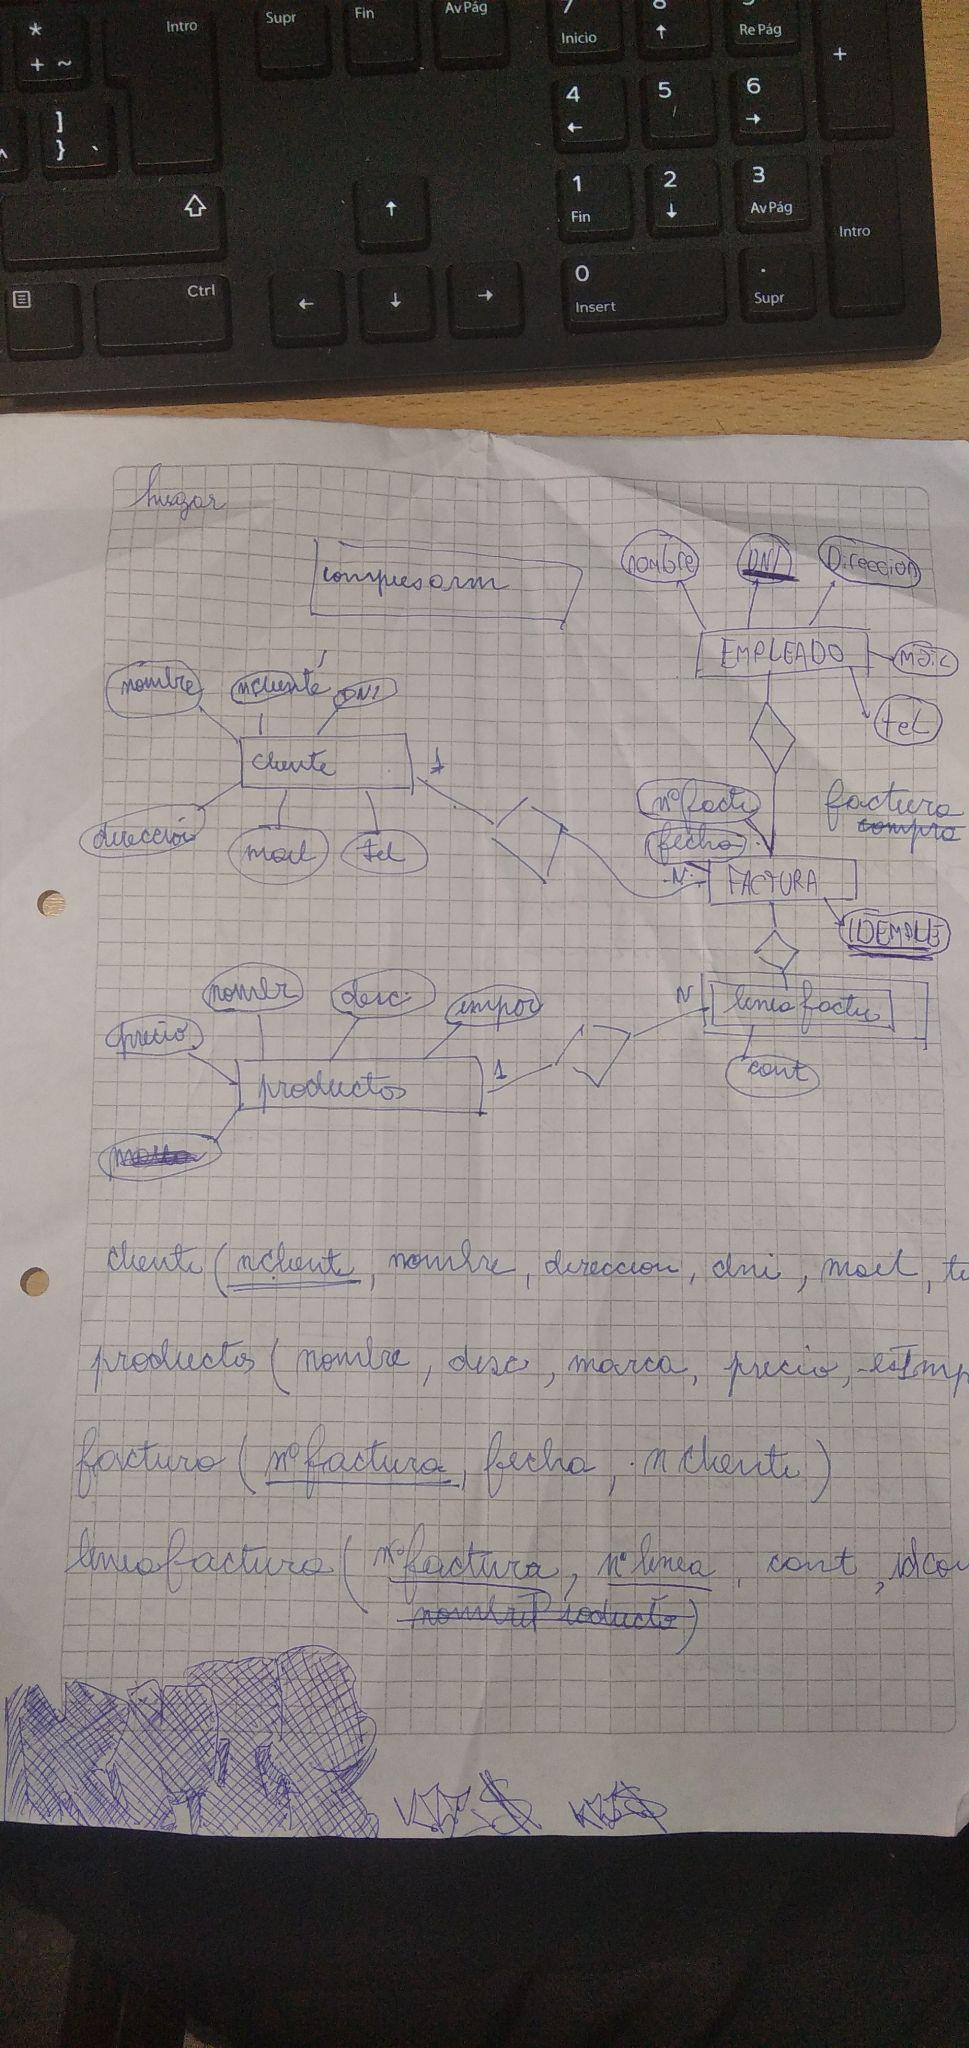 * Intro Supr Fin AvPág 7 Inicio 8 ↑ 9 Re Pág
+ ~ +
] 4 ← 5 6 →
} `
1 Fin 2 ↓ 3 AvPág
↑ Intro
Ctrl ← ↓ → 0 Insert . Supr
nombre DNI Direccion
EMPLEADO
tel
nombre ncliente DNI
cliente 1
dirección mail tel
nº factu factura
fecha compra
N FACTURA
IDEMPLE
nombr desc. impor N linea factu
precio
productos 1 cant
cliente (ncliente, nombre, direccion, dni, mail, te
productos (nombre, desc, marca, precio,
factura (nº factura, fecha, ncliente)
lineafactura (nº factura, nº linea, cant,
nombreProducto)